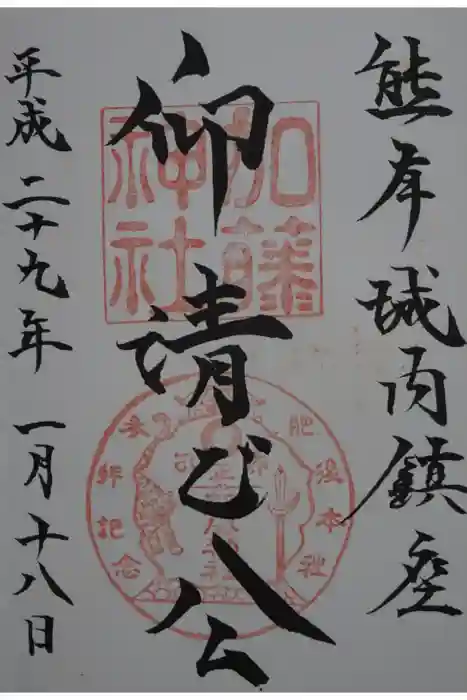 熊本城内鎮座
仰清正公
平成二十九年一月十八日
加藤
神社
肥後本社
参拝記念